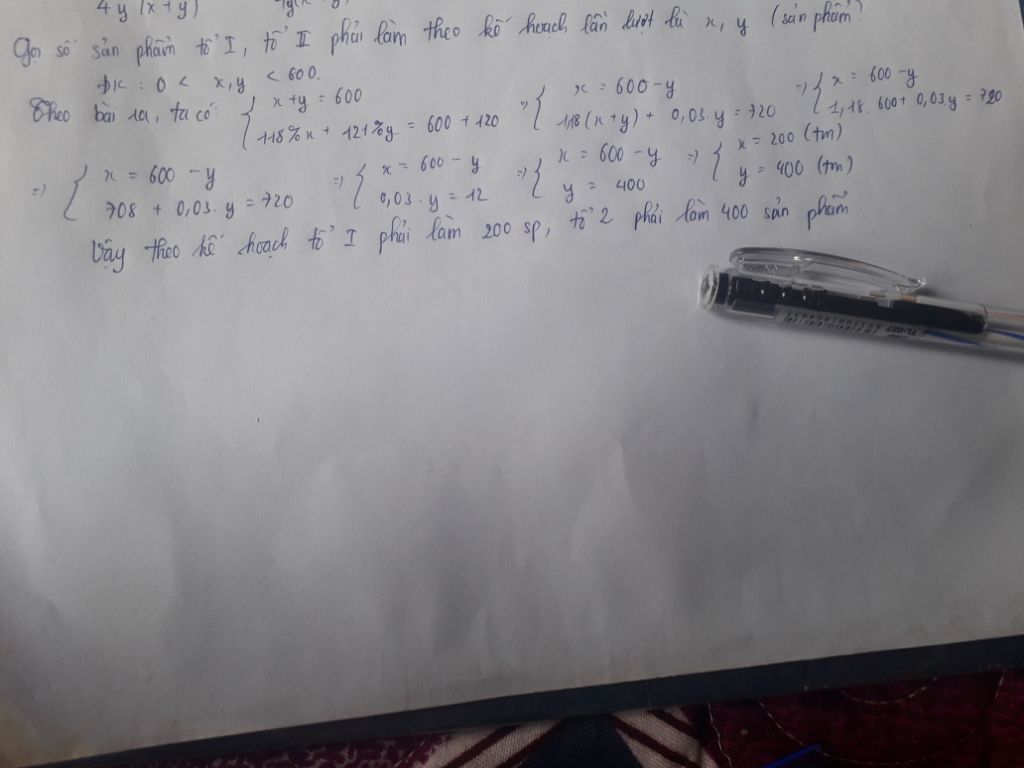 4y (x+y)
Gọi số sản phẩm tổ I, tổ II phải làm theo kế hoạch lần lượt là x, y (sản phẩm)
ĐK : 0 < x, y < 600.
Theo bài ra, ta có: { x+y = 600 => { x = 600-y => { x = 600-y
118%x + 121%y = 600 + 120 1,18(x+y) + 0,03.y = 720 1,18. 600+ 0,03y = 720
=> { x = 600 - y => { x = 600 - y => { x = 600 - y => { x = 200 (tm)
708 + 0,03. y = 720 0,03. y = 12 y = 400 y = 400 (tm)
Vậy theo kế hoạch tổ I phải làm 200 sp, tổ 2 phải làm 400 sản phẩm.